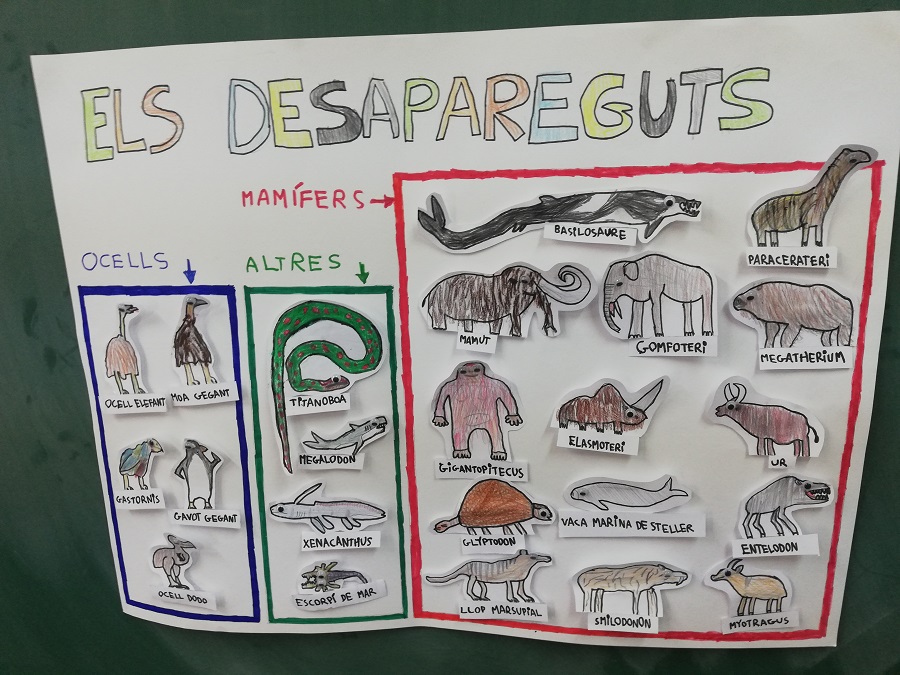 ELS DESAPAREGUTS
MAMÍFERS
OCELLS
ALTRES
OCELL ELEFANT
MOA GEGANT
GASTORNIS
GAVOT GEGANT
OCELL DODO
TITANOBOA
MEGALODON
XENACANTHUS
ESCORPÍ DE MAR
BASILOSAURE
PARACERATERI
MAMUT
GOMFOTERI
MEGATHERIUM
GIGANTOPITECUS
ELASMOTERI
UR
GLIPTODON
VACA MARINA DE STELLER
ENTELODON
LLOP MARSUPIAL
SMILODONON
MYOTRAGUS